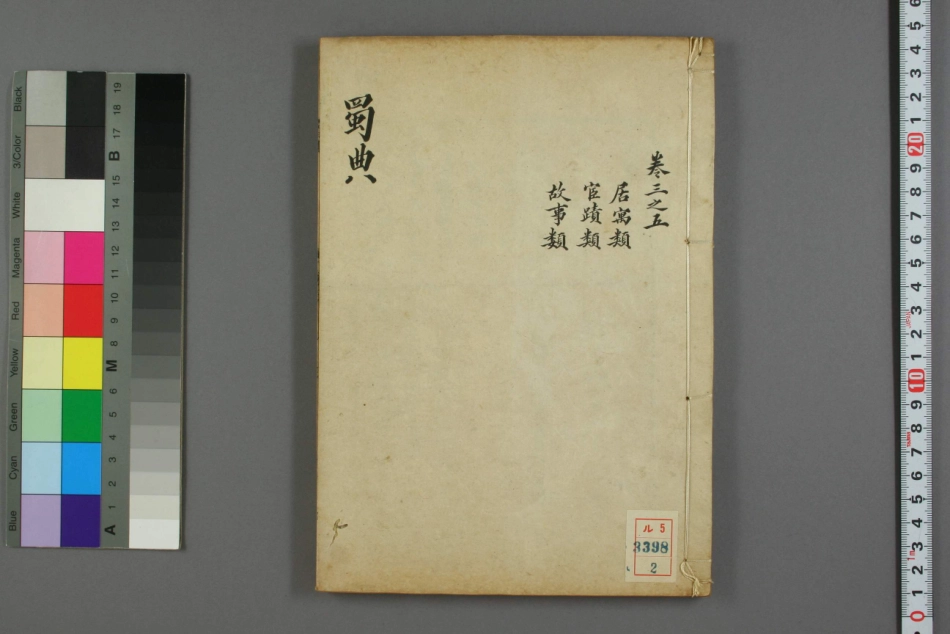 蜀典
卷三之五
居寓類
宦蹟類
故事類
ル 5
3398
2
Black
3/Color
White
Magenta
Red
Yellow
Green
Cyan
Blue
19
18
17
B
15
14
13
12
11
10
9
8
M
6
5
4
3
2
1
A
6
5
4
3
2
1
20
9
8
7
6
5
4
3
2
1
10
9
8
7
6
5
4
3
2
1
0